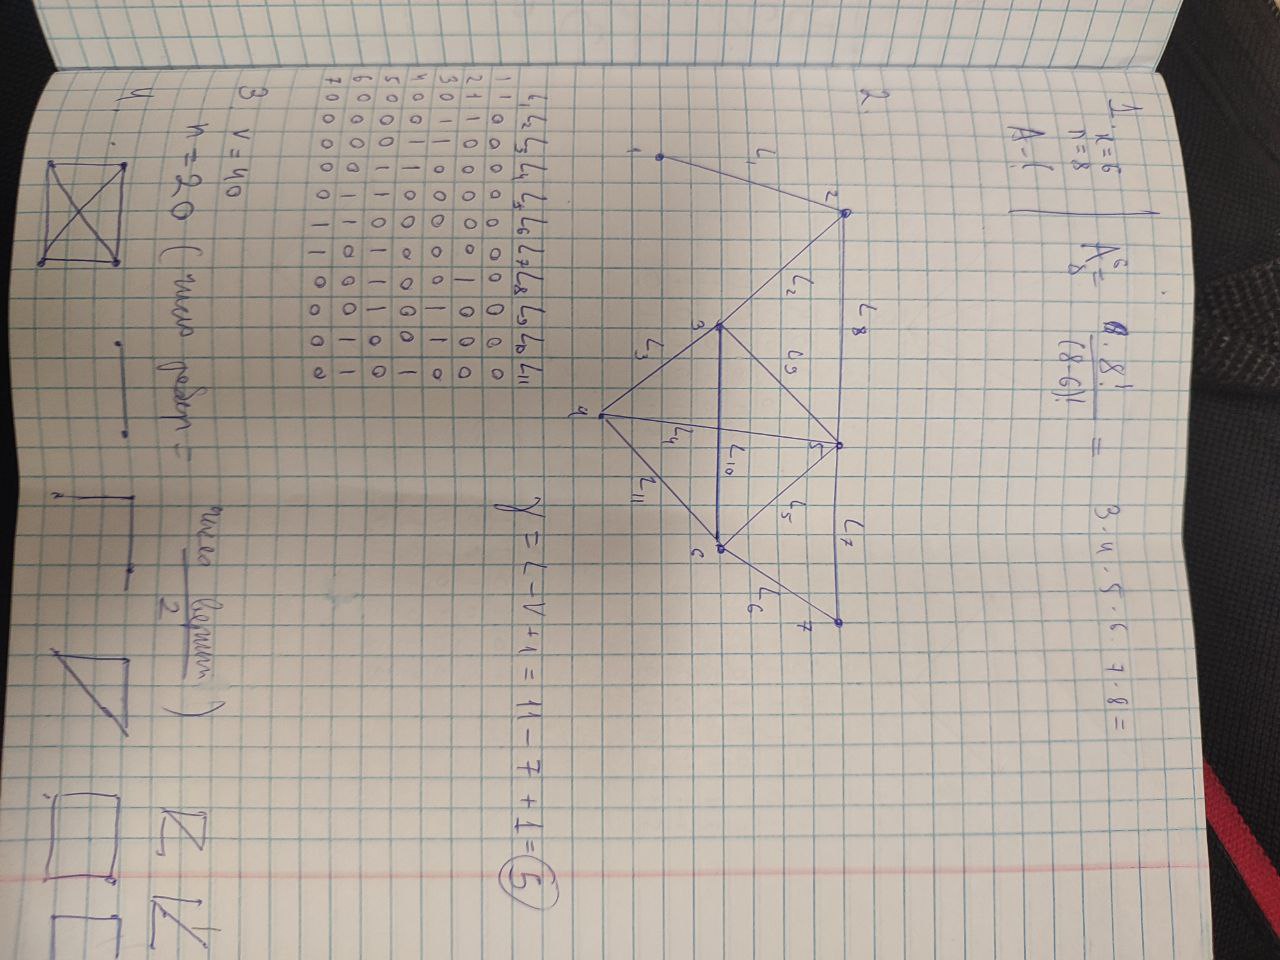 1. k=6
n=8
A-?
A⁶₈ = 8! / (8-6)! = 3·4·5·6·7·8 =
2.
1 2 3 4 5 6 7
L₁ L₂ L₃ L₄ L₅ L₆ L₇ L₈ L₉ L₁₀ L₁₁
L₁ L₂ L₃ L₄ L₅ L₆ L₇ L₈ L₉ L₁₀ L₁₁
1 1 0 0 0 0 0 0 0 0 0 0
2 1 1 0 0 0 0 0 1 0 0 0
3 0 1 1 0 0 0 0 0 1 1 0
4 0 0 1 1 0 0 0 0 0 0 1
5 0 0 0 1 1 0 1 1 1 0 0
6 0 0 0 0 1 1 0 0 0 1 1
7 0 0 0 0 0 1 1 0 0 0 0
γ = L - V + 1 = 11 - 7 + 1 = 5
3. v = 40
n = 20 (число ребер = число вершин / 2)
4.